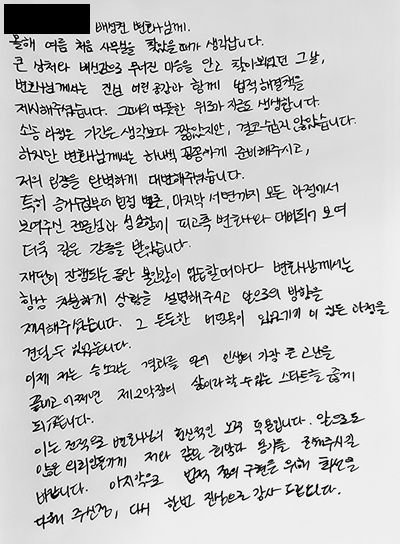 배성권 변호사님께.
올해 여름 처음 사무실을 찾았을 때가 생각납니다.
큰 상처와 배신감으로 무너진 마음을 안고 찾아뵈었던 그날,
변호사님께서는 진심 어린 공감과 함께 법적 해결책을
제시해주셨습니다. 그때의 따뜻한 위로가 지금도 생생합니다.
소송 과정은 기간은 생각보다 짧았지만, 결코 쉽지 않았습니다.
하지만 변호사님께서는 하나하나 꼼꼼하게 준비해주시고,
저의 입장을 완벽하게 대변해주셨습니다.
특히 증거수집부터 법정 변론, 마지막 서면까지 모든 과정에서
보여주신 전문성과 성실함이 피고측 변호사와 대비되어 보여
더욱 깊은 감동을 받았습니다.
재판이 진행되는 동안 불안감이 엄습할 때마다 변호사님께서는
항상 차분하게 상황을 설명해주시고 앞으로의 방향을
제시해주셨습니다. 그 든든한 버팀목이 있었기에 이 힘든 과정을
견딜 수 있었습니다.
이제 저는 승소라는 결과를 안고 인생의 가장 큰 고난을
끝내고 어쩌면 제2막장의 삶이라 할 수 있는 스타트를 끊게
되었습니다.
이는 전적으로 변호사님의 헌신적인 노력 덕분입니다. 앞으로도
많은 의뢰인들에게 저와 같은 희망과 용기를 전해주시길
바랍니다. 마지막으로 법적 정의 구현을 위해 최선을
다해 주신점, 다시 한번 진심으로 감사 드립니다.